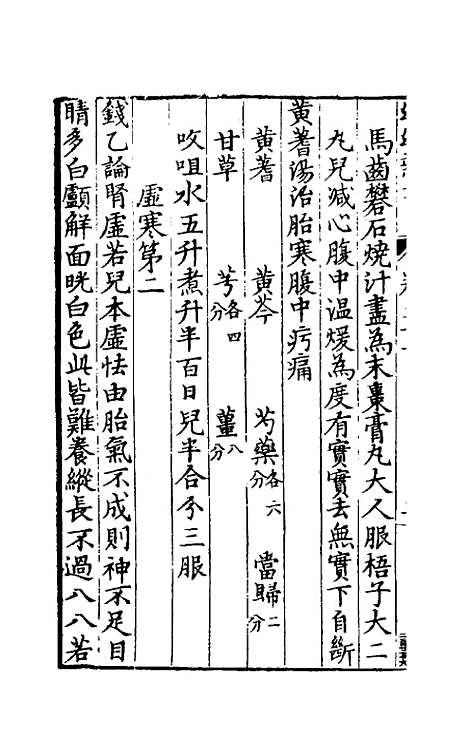 馬齒礬石燒汁盡為末棗膏丸大人服梧子大二
丸兒減心腹中温煖為度有實實去無實下自斷
黄蓍湯治胎寒腹中疞痛
黄蓍 黄芩 芍藥各六分 當歸二分
甘草 芎各四分 薑八分
㕮咀水五升煮升半百日兒半合分三服
虛寒第二
錢乙論腎虛若兒本虛怯由胎氣不成則神不足目
睛多白顱解面㿠白色此皆難養縱長不過八八若